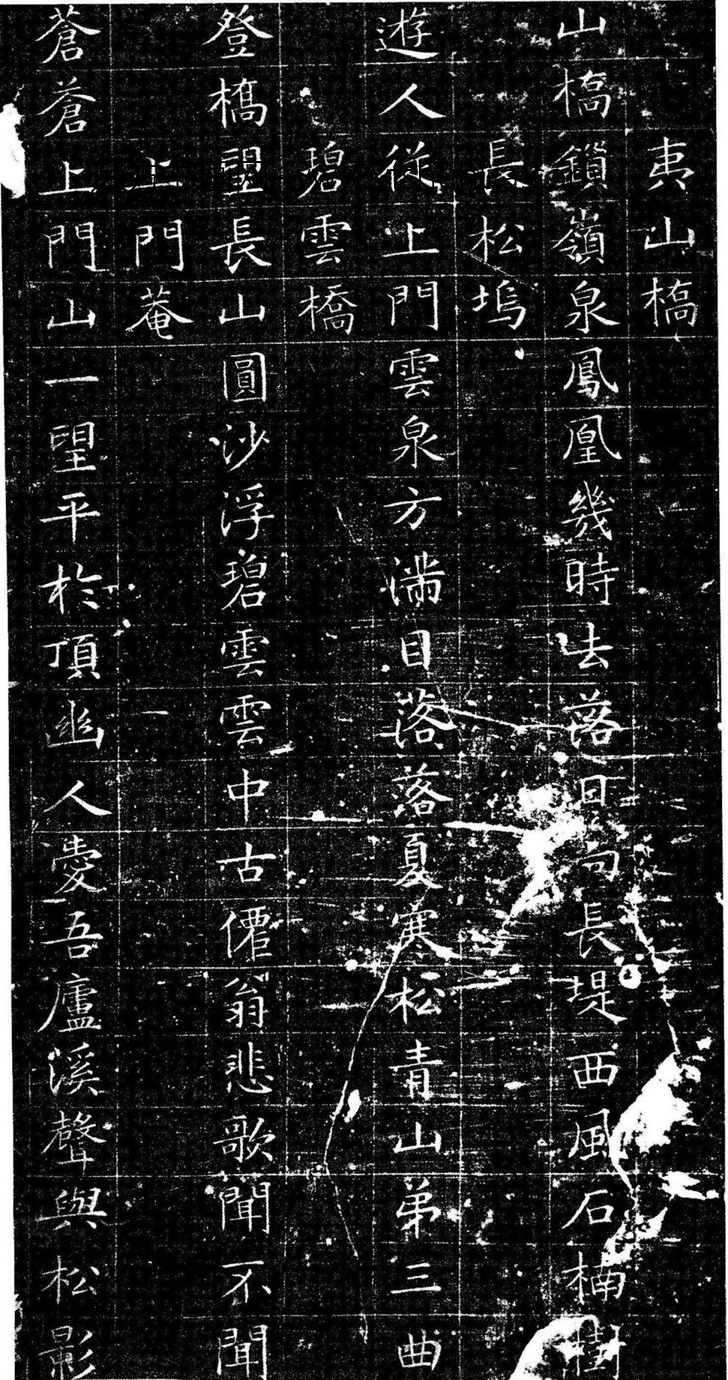 夷山橋
山橋鎖嶺泉鳳凰幾時去落日向長堤西風石楠樹
長松塢
遊人從上門雲泉方滿目落落夏寒松青山第三曲
碧雲橋
登橋望長山圓沙浮碧雲雲中古僊翁悲歌聞不聞
上門菴
蒼蒼上門山一望平於頂幽人愛吾廬溪聲與松影